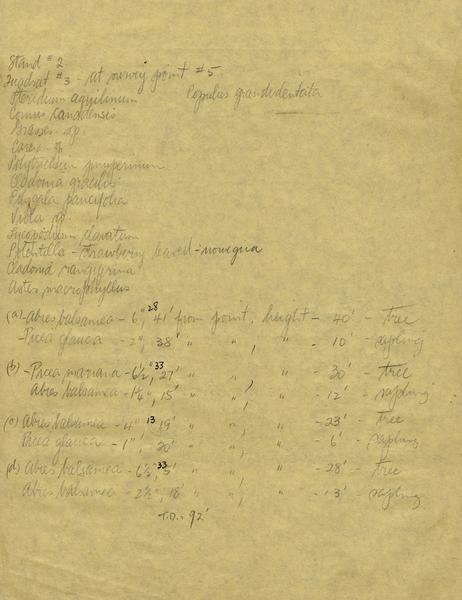 Stand # 2
Quadrat # 3 - at survey point # 5
Pteridium aquilinum Populus grandidentata
Cornus canadensis
Grasses sp
Carex sp.
Polytrichum juniperinum
Cladonia gracilis
Polygala paucifolia
Viola sp.
Lycopodium clavatum
Potentilla - Strawberry leaved - norvegica
Cladonia rangiferina
Aster macrophyllus
(a) - Abies balsamea - 6", 28 41' from point, height - 40' - tree
Picea glauca - 2", 38' " " , " - 10' - sapling
(b) - Picea mariana - 6½", 33 27' " " , " - 30' - tree
Abies balsamea - 1¼", 15' " " , " - 12' - sapling
(c) Abies balsamea - 4", 13 19' " " , " - 23' - tree
Picea glauca - 1", 20' " " , " - 6' - sapling
(d) Abies balsamea - 6½", 33 " " , " - 28' - tree
Abies balsamea - 2½", 18' " " , " - 13' - sapling
T.D. = 92'